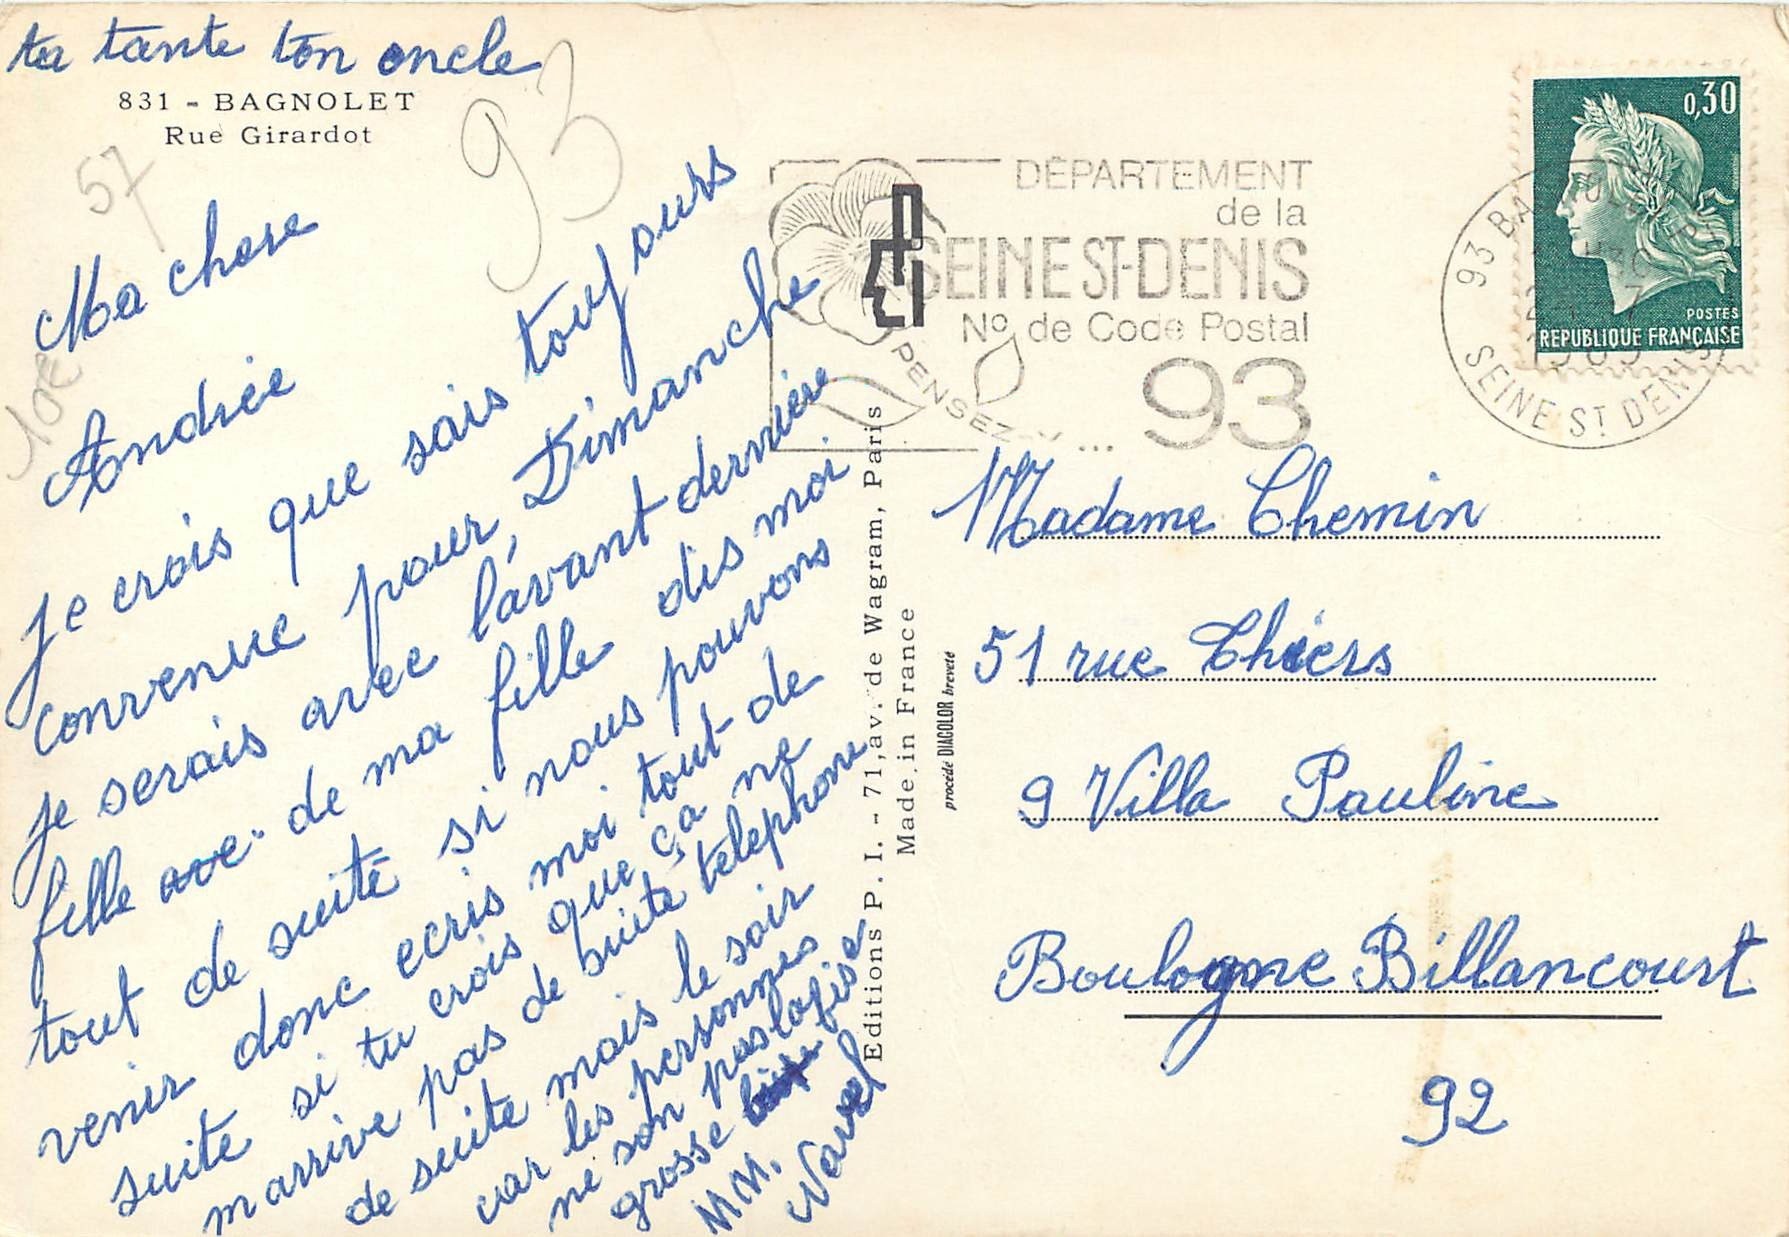 ta tante ton oncle
831 - BAGNOLET
Rue Girardot
57
93
10€
Ma chere
Andrée
je crois que sais toujours
convenue pour Dimanche
je serais avec l'avant derrière
fille ave de ma fille dis moi
tout de suite si nous pouvons
venir donc ecris moi tout de
suite si tu crois que ça ne
marrive pas de suite telephone
de suite mais le soir
car les personnes
ne son pas
grosse
M M.
Editions P. I. - 71, av. de Wagram, Paris
Made in France
procédé DIACOLOR breveté
DÉPARTEMENT
de la
SEINE ST-DENIS
No de Code Postal
93
PENSEZ-Y...
0,30
POSTES
REPUBLIQUE FRANÇAISE
SEINE ST DENIS
Madame Chemin
51 rue Thiers
9 Villa Pauline
Boulogne Billancourt
92